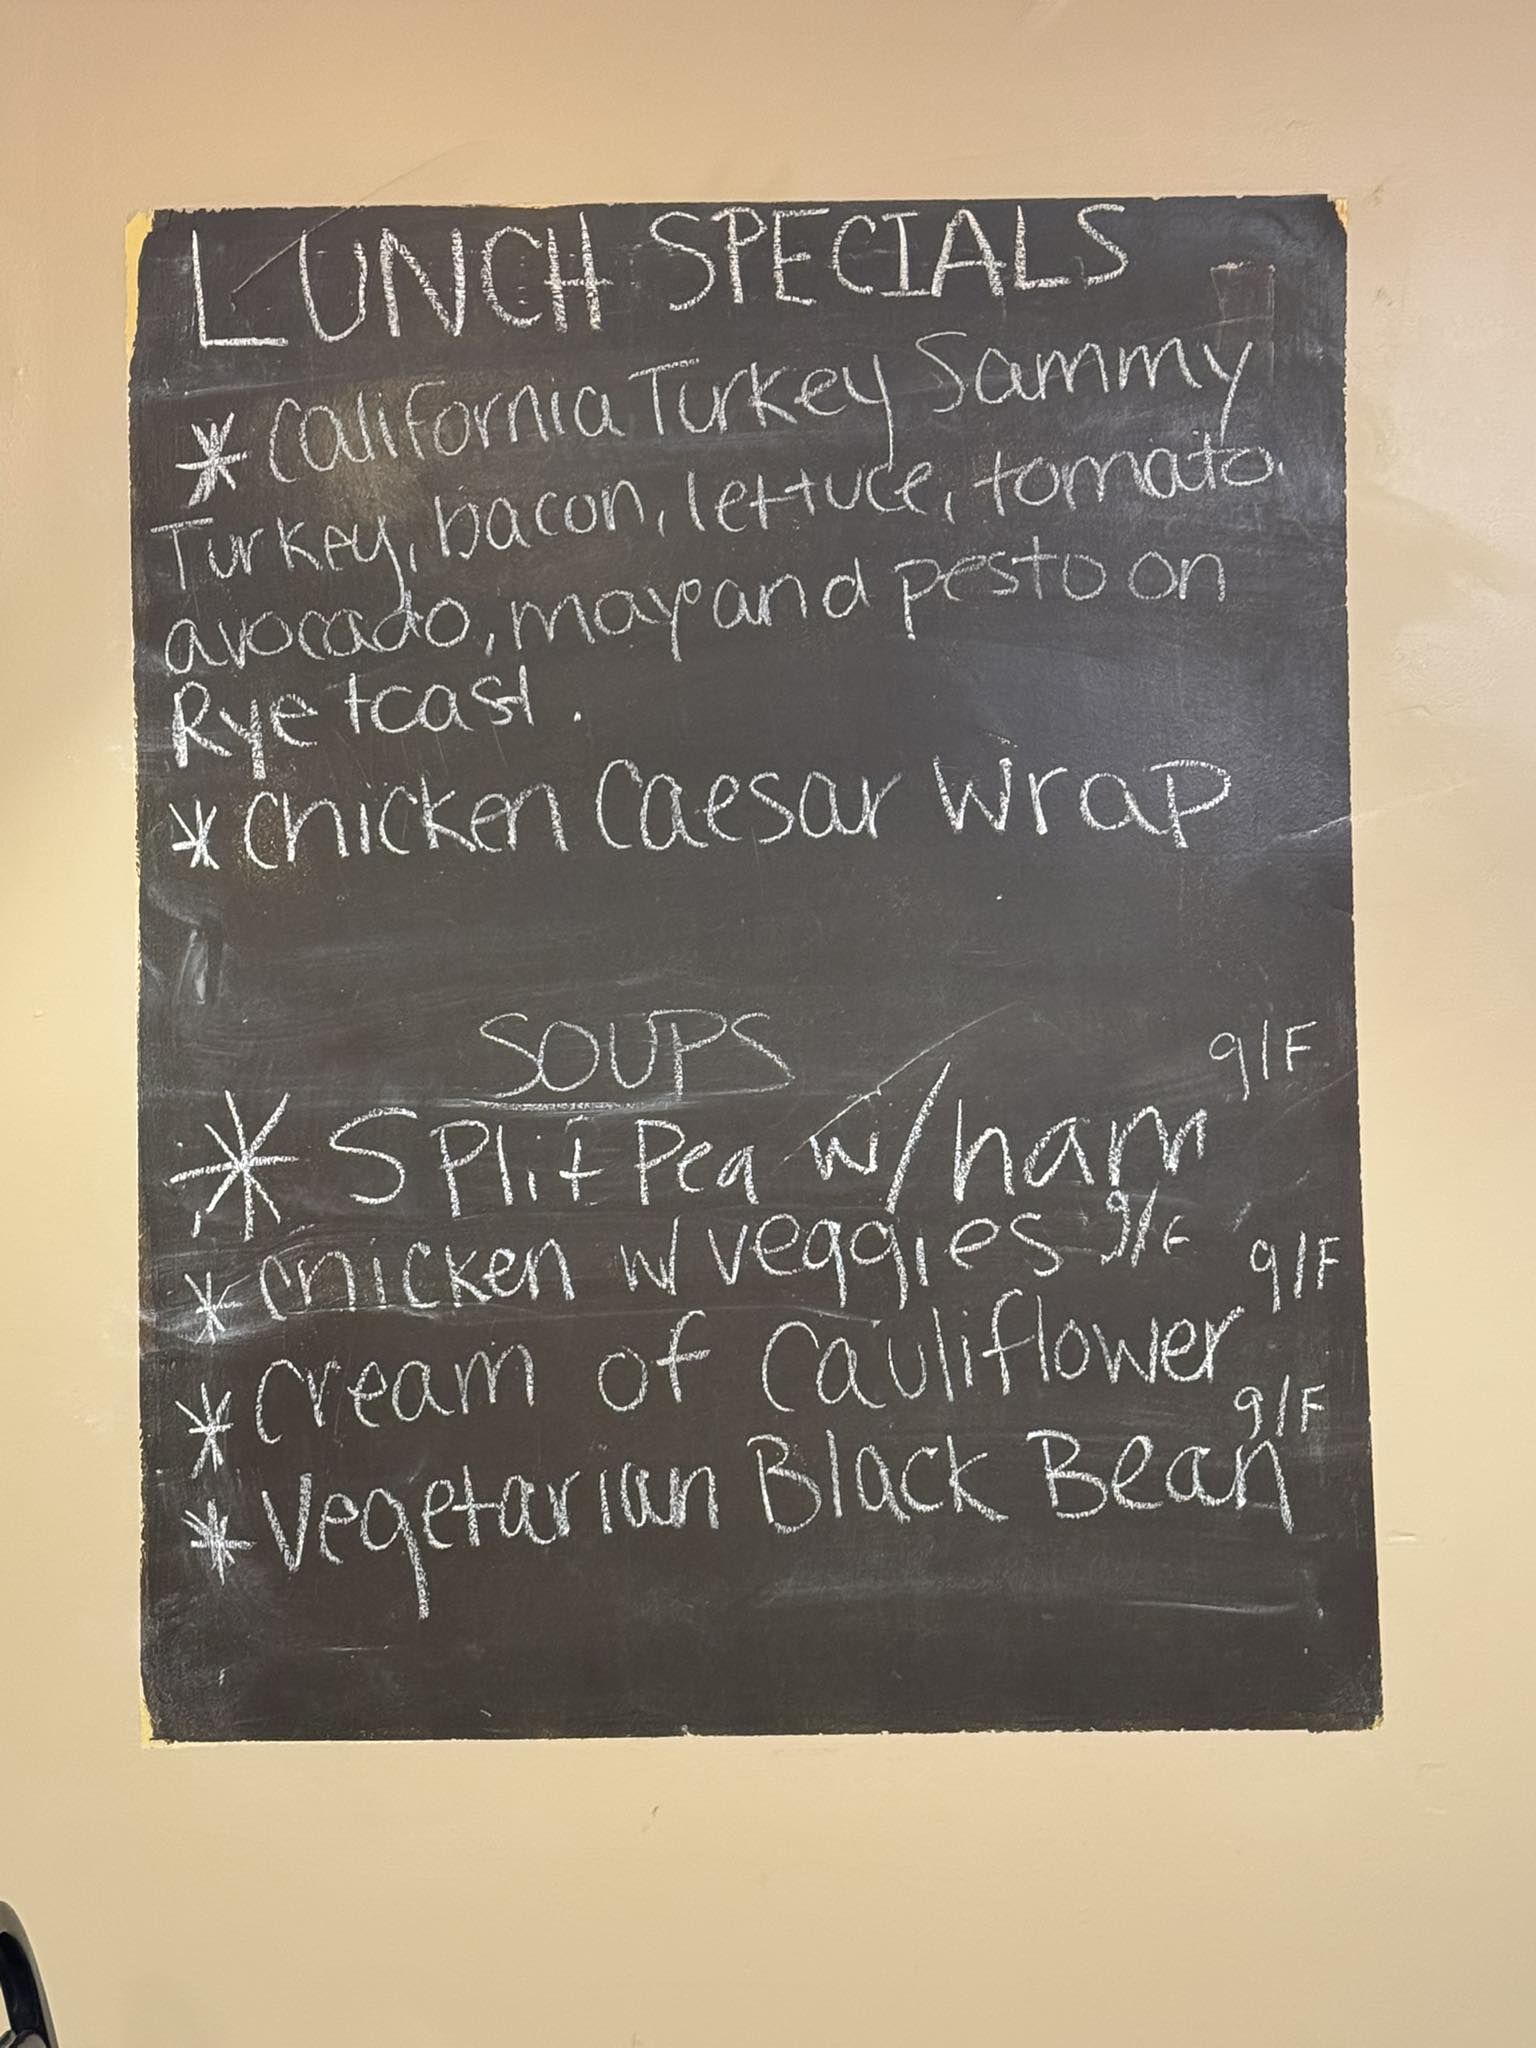 LUNCH SPECIALS
* California Turkey Sammy
Turkey, bacon, lettuce, tomato.
avocado, mayo and pesto on
Rye toast.
* Chicken Caesar Wrap
SOUPS
* Split Pea w/ham g/F
* Chicken w/ veggies g/F
* Cream of Cauliflower g/F
* Vegetarian Black Bean g/F